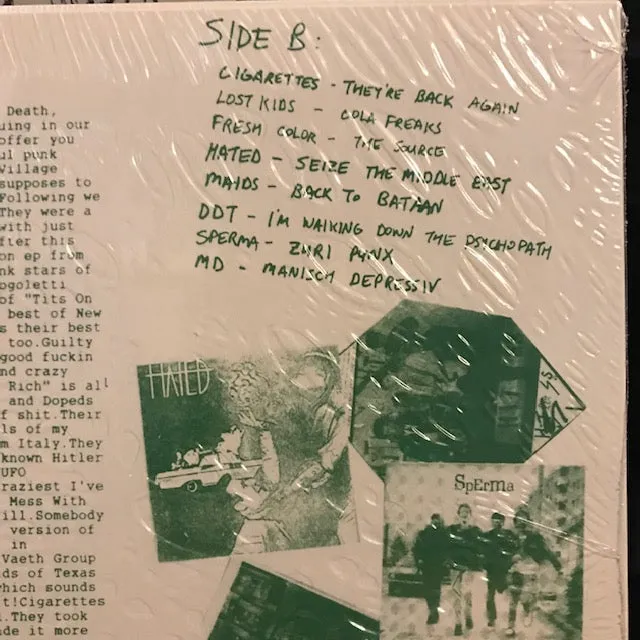 SIDE B:
CIGARETTES - THEY'RE BACK AGAIN
LOST KIDS - COLA FREAKS
FRESH COLOR - THE SOURCE
HATED - SEIZE THE MIDDLE EAST
MAIDS - BACK TO BATAAN
DDT - I'M WALKING DOWN THE PSYCHOPATH
SPERMA - ZURI PUNX
MD - MANISCH DEPRESSIV
Death,
uing in our
offer you
ul punk
Village
supposes to
Following we
They were a
with just
fter this
on ep from
nk stars of
ogoletti
of "Tits On
best of New
s their best
too.Guilty
good fuckin
nd crazy
Rich" is all
and Dopeds
f shit.Their
ls of my
m Italy.They
known Hitler
UFO
raziest I've
Mess With
ill.Somebody
version of
in
Vaeth Group
ds of Texas
which sounds
t!Cigarettes
l.They took
de it more
HATED
45
SpErma